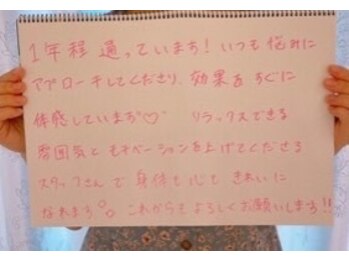 1年程 通っています！いつも悩みに
アプローチしてくださり、効果をすぐに
体感しています♡ リラックスできる
雰囲気とモチベーションを上げてくださる
スタッフさんで身体も心も、きれいに
なれます。これからもよろしくお願いします!!